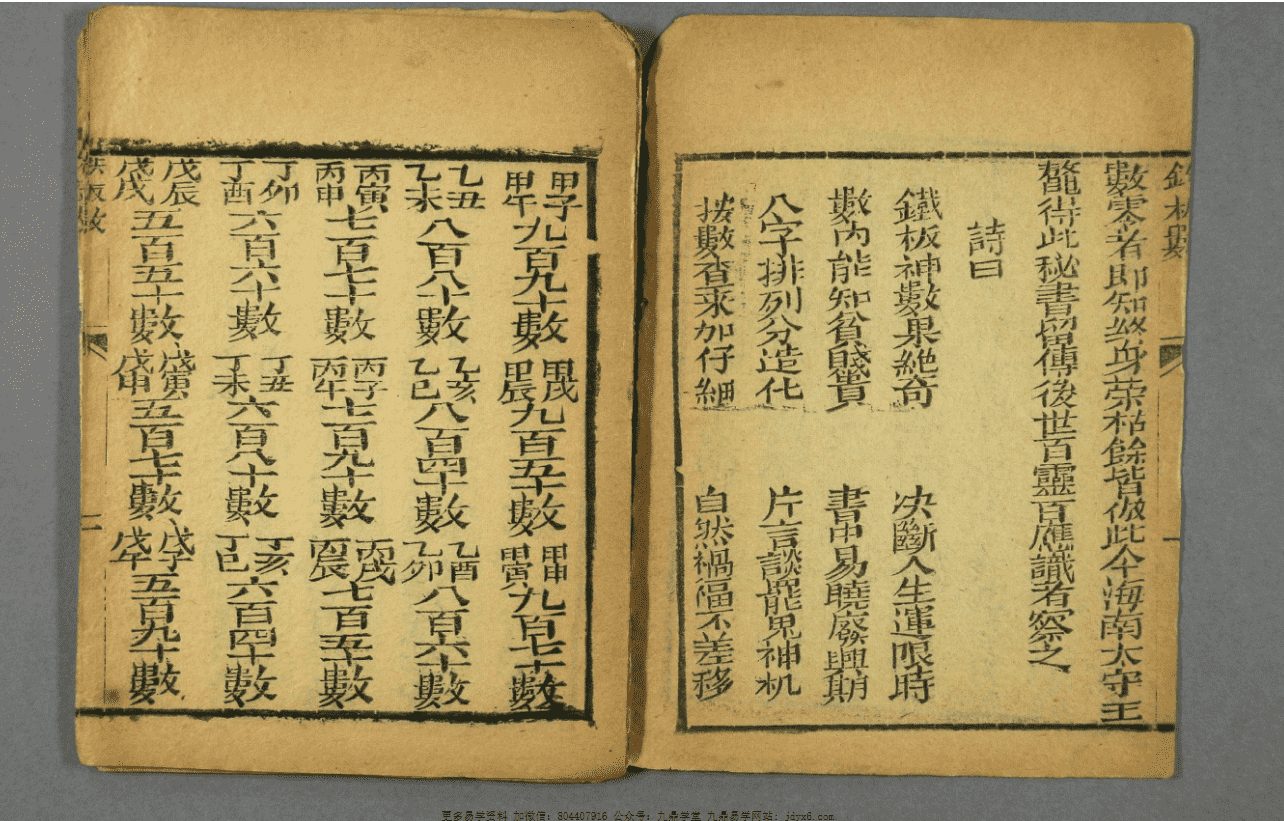 板數 一
數零者即知終身荣枯餘皆倣此今海南太守王
鰲得此秘書留傳後世百靈百應識者察之
詩曰
鐵板神數果絶奇 决斷人生運限時
數内能知貧賤貴 書中易曉廢興期
八字排列分造化 片言談罷鬼神机
按數查来加仔細 自然禍福不差移
甲子甲午九百九十數 甲戌甲辰九百五十數 甲申甲寅九百七十數
乙丑乙未八百八十數 乙亥乙巳八百四十數 乙酉乙卯八百六十數
丙寅丙申七百七十數 丙子丙午七百九十數 丙戌丙辰七百五十數
丁卯丁酉六百六十數 丁丑丁未六百八十數 丁亥丁巳六百四十數
戊辰戊戌五百五十數 戊寅戊申五百七十數 戊子戊午五百九十數
板數 二
更多易学资料 加微信：804407916 公众号：九鼎学堂 九鼎易学网站：jdyx6.com